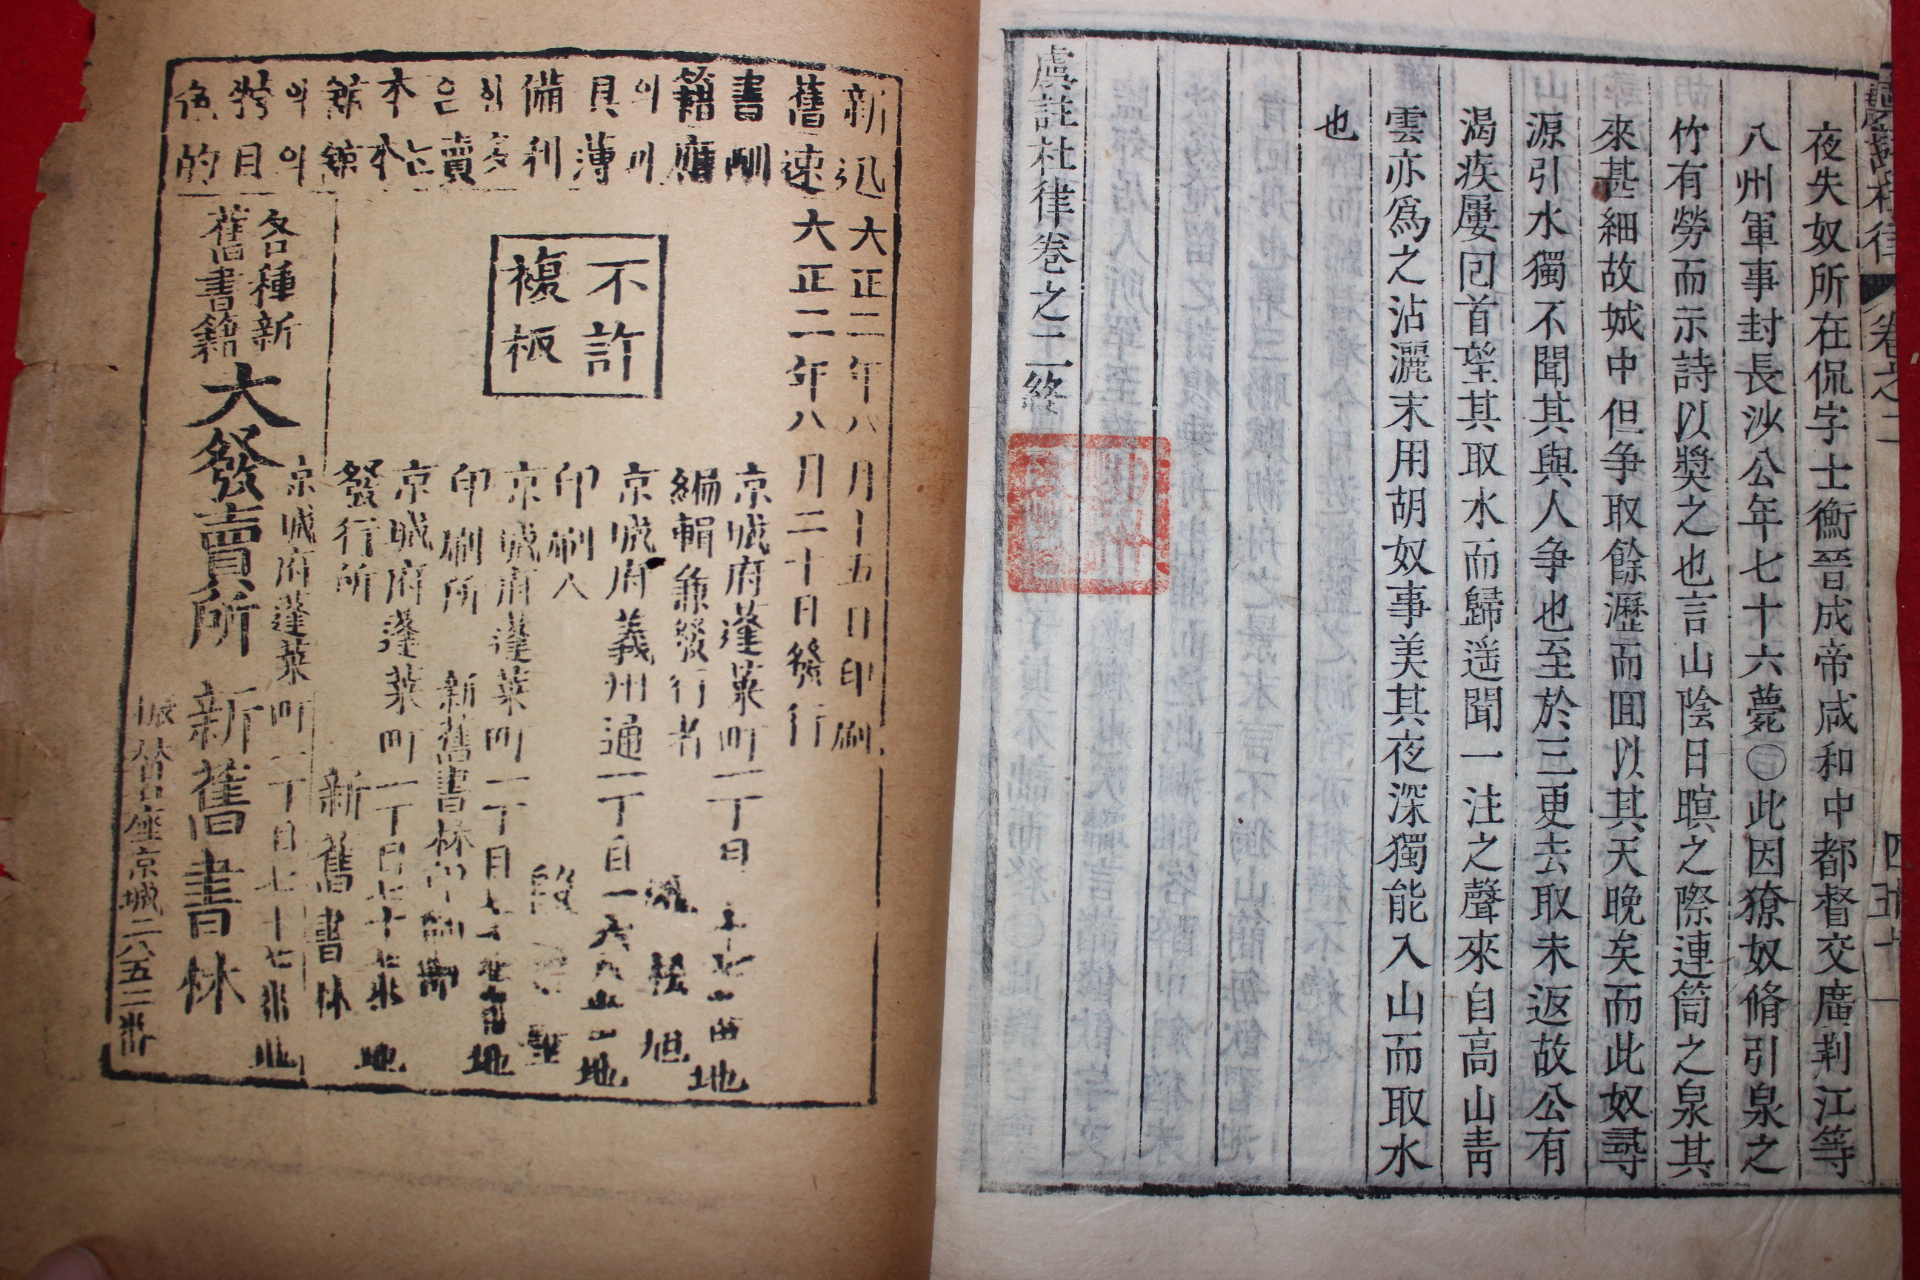 夜失奴所在侃字士衡晉成帝咸和中都督交廣荆江等
八州軍事封長沙公年七十六薨○此因獠奴脩引泉之
竹有勞而示詩以奬之也言山陰日暝之際連筒之泉其
來甚細故城中但争取餘瀝而囬以其天晚矣而此奴尋
源引水獨不聞其與人争也至於三更去取未返故公有
渴疾屢囘首望其取水而歸遥聞一注之聲來自高山青
雲亦爲之沾灑末用胡奴事美其夜深獨能入山而取水
也
虞註杜律卷之二終
卷之二
新舊書籍의具備와多賣은本本館의特色
迅速酬應이薄利
目的
大正二年八月十五日印刷
大正二年八月二十日發行
不許複板
京城府蓬萊町一丁目七十七番地
編輯兼發行者 池松旭
京城府義州通一丁目
印刷人
京城府蓬萊町一丁目七十七番地
印刷所 新舊書林印刷部
京城府蓬萊町一丁目七十七番地
發行所 新舊書林
京城府蓬萊町一丁目七十七番地
各種新舊書籍
大發賣所 新舊書林
振替口座京城二八五二番